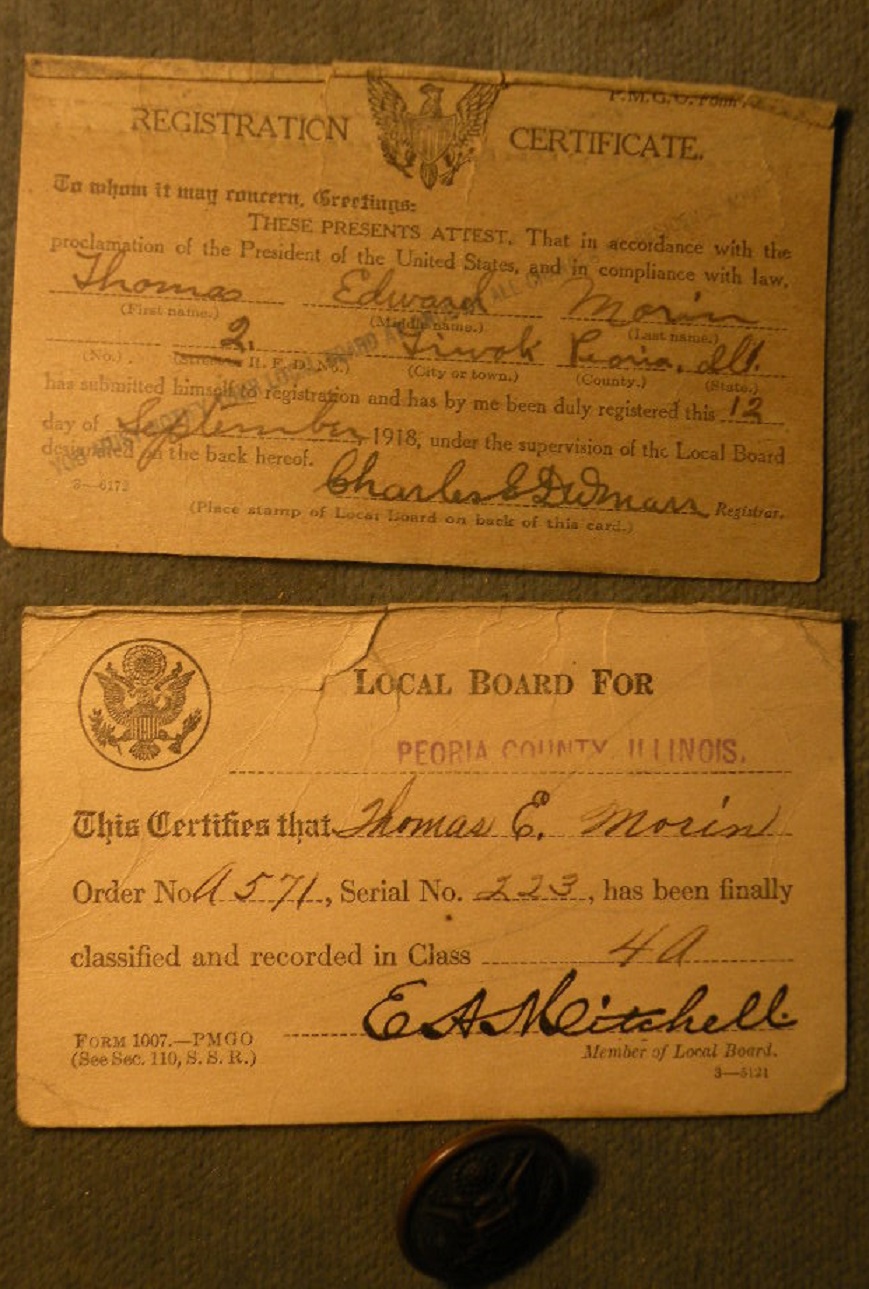 P.M.G.O. Form
REGISTRATION CERTIFICATE.
To whom it may concern, Greetings:
THESE PRESENTS ATTEST, That in accordance with the
proclamation of the President of the United States, and in compliance with law,
Thomas Edward Morin
(First name.) (Middle name.) (Last name.)
2. Peoria, Ill.
(No.) (Street or R. F. D. No.) (City or town.) (County.) (State.)
has submitted himself to registration and has by me been duly registered this 12
day of September 1918, under the supervision of the Local Board
designated on the back hereof.
3—6172
Charles Registrar.
(Place stamp of Local Board on back of this card.)
LOCAL BOARD FOR
PEORIA COUNTY, ILLINOIS.
This Certifies that Thomas E. Morin
Order No A571, Serial No. 223, has been finally
classified and recorded in Class 4A
E A Mitchell
FORM 1007.—PMGO
Member of Local Board.
(See Sec. 110, S. S. R.)
3—5121